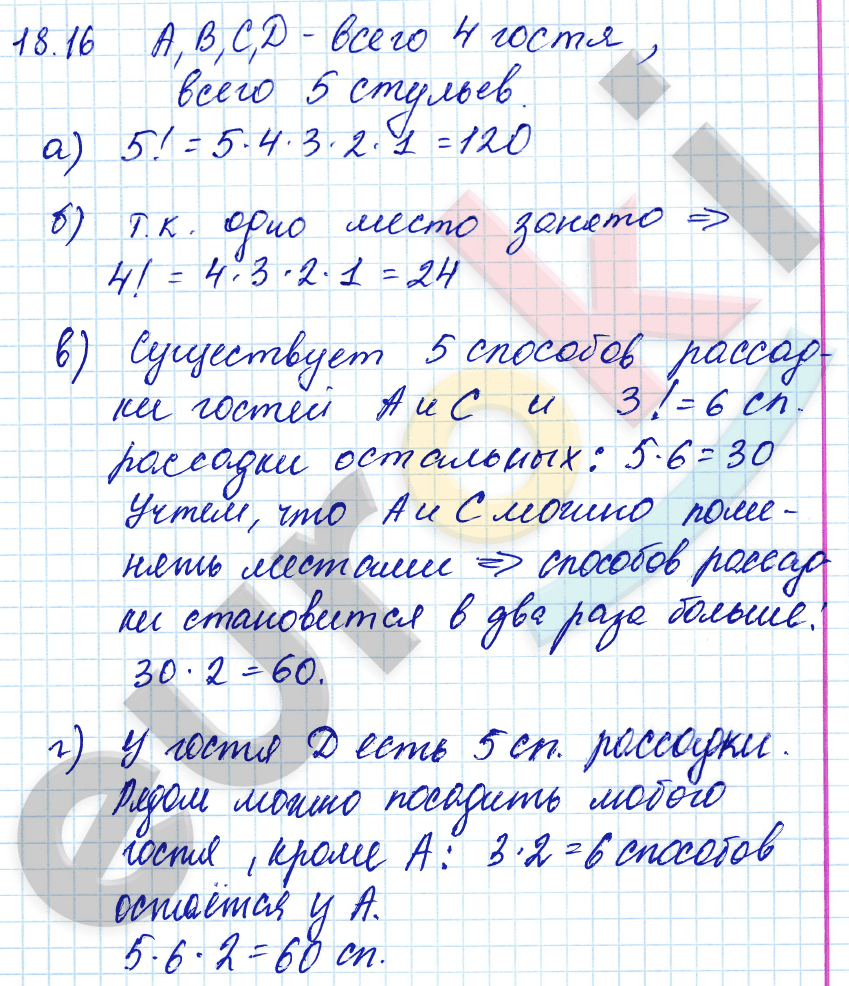 18.16 A, B, C, D - всего 4 гостя,
всего 5 стульев.
а) 5! = 5·4·3·2·1 = 120
б) т.к. одно место занято ⇒
4! = 4·3·2·1 = 24
в) Существует 5 способов рассад-
ки гостей A и C и 3! = 6 сп.
рассадки остальных: 5·6 = 30
Учтем, что A и C можно поме-
нять местами ⇒ способов рассад-
ки становится в два раза больше:
30·2 = 60.
г) У гостя D есть 5 сп. рассадки.
Рядом можно посадить любого
гостя, кроме A: 3·2 = 6 способов
остаётся у A.
5·6·2 = 60 сп.
euroki